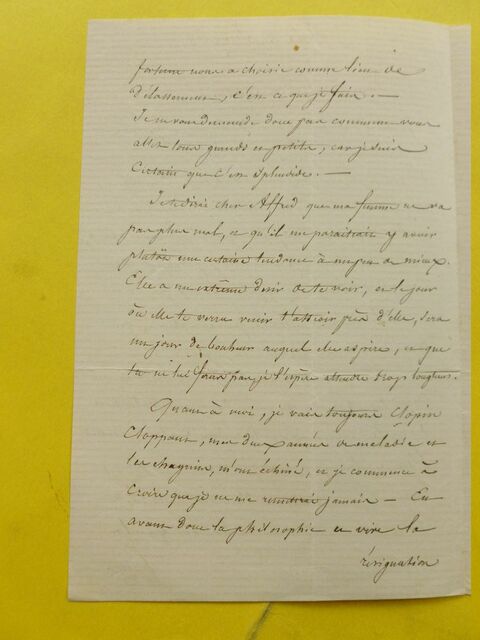 fortune nous a choisie comme lieu de
délassement, c'est ce que je fais. —
Je ne vous demande donc pas comment vous
allez tous grands et petits, car je suis
certain que c'est splendide. —
Je te dirai cher Alfred que ma femme ne va
pas plus mal, et qu'il me paraitrait y avoir
plutôt une certaine tendance à un peu de mieux.
Elle a un extrême désir de te voir, et le jour
où elle te verra venir t'asseoir près d'elle, sera
un jour de bonheur auquel elle aspire, et que
tu ne lui feras pas, je l'espère attendre trop longtems.
Quant à moi, je vais toujours Clopin
Cloppant, mes deux années de maladie et
les chagrins, m'ont échiné, et je commence à
croire que je ne me remettrai jamais — En
avant donc la philosophie et vive la
résignation